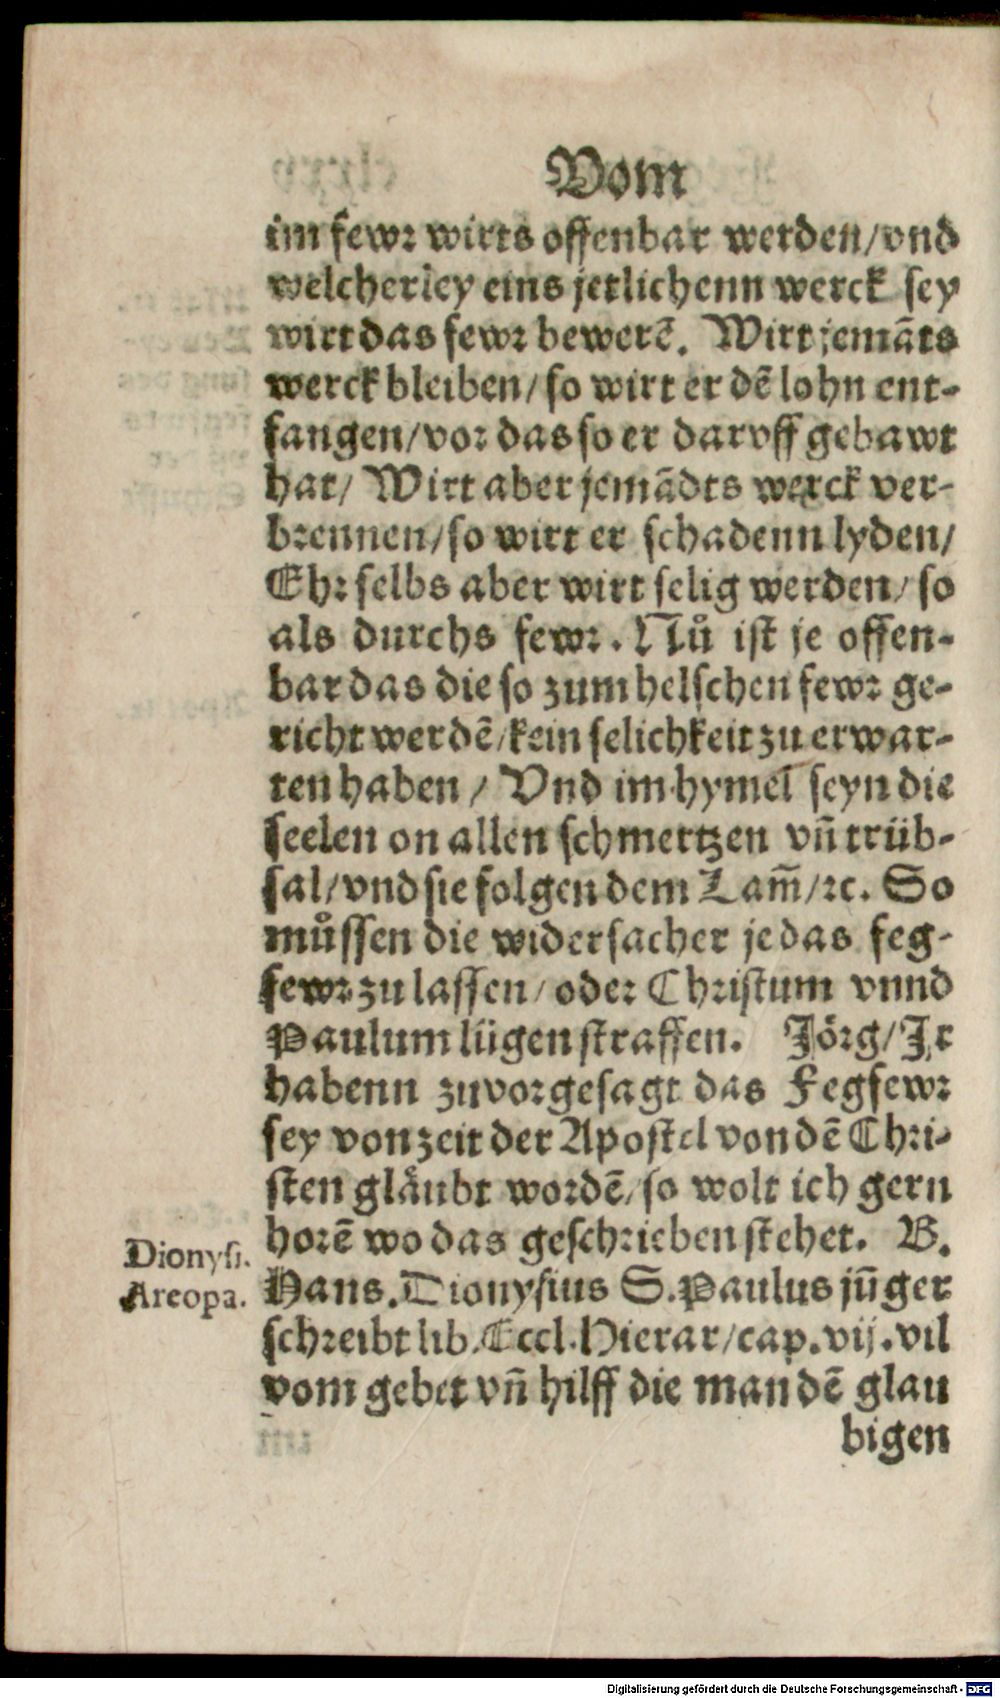 Vom
im fewr wirts offenbar werden/vnd
welcherley eins jetlichenn werck sey
wirt das fewr bewerẽ. Wirt jemãts
werck bleiben/so wirt er dẽ lohn ent-
fangen/vor das so er darvff gebawt
hat/ Wirt aber jemãdts werck ver-
brennen/so wirt er schadenn lyden/
Ehr selbs aber wirt selig werden/so
als durchs fewr. Nů ist je offen-
bar das die so zum helschen fewr ge-
richt werdẽ/kein selichkeit zu erwar-
ten haben/ Vnd im hymel seyn die
seelen on allen schmertzen vñ trüb-
sal/vnd sie folgen dem Lam̃/ꝛc. So
můssen die widersacher je das feg-
fewr zu lassen/oder Christum vnnd
Paulum lügen straffen. Jörg/Ir
habenn zuvor gesagt das Fegfewr
sey von zeit der Apostel von dẽ Chri-
sten gläubt wordẽ/so wolt ich gern
horẽ wo das geschrieben stehet. B.
Dionysi.
Areopa.
Hans. Dionysius S. Paulus jũger
schreibt lib. Eccl. Hierar/cap. vij. vil
vom gebet vñ hilff die man dẽ glau
bigen
Digitalisierung gefördert durch die Deutsche Forschungsgemeinschaft - DFG